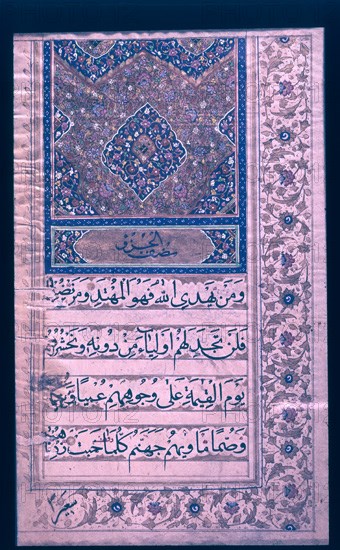 ومن يهدى الله فهو المهتد ومن يضلل
فلن تجد لهم اولياء من دونه ونحشرهم
يوم القيمة على وجوههم عميا وبكما
وصما ماويهم جهنم كلما خبت زدنا